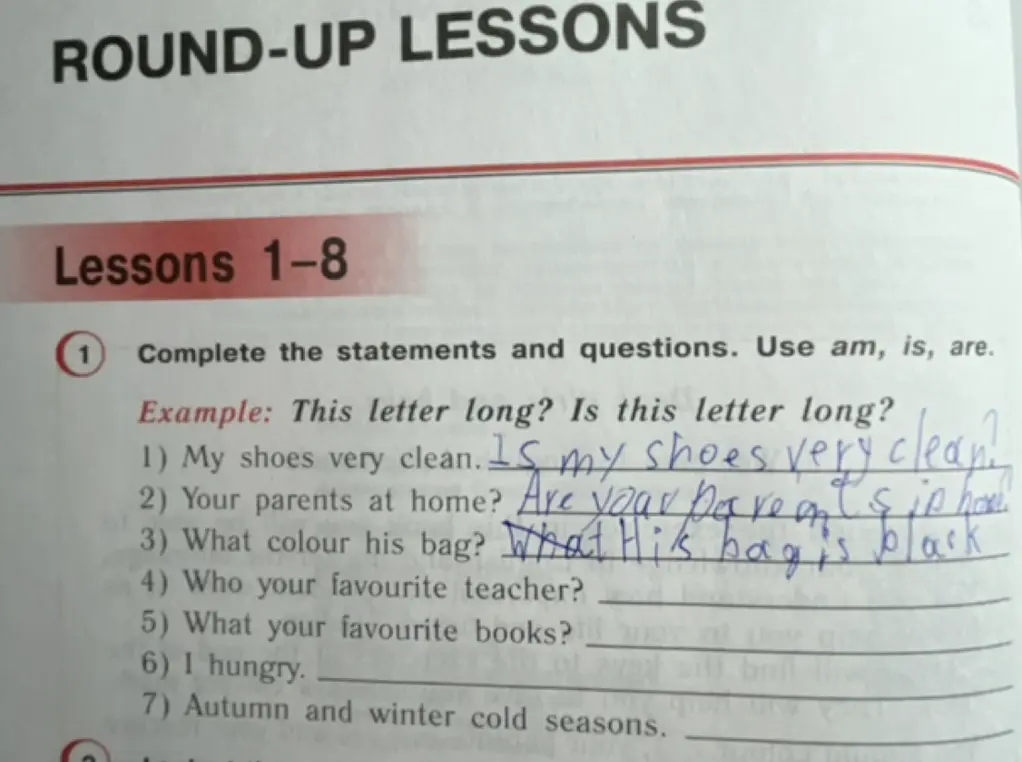 ROUND-UP LESSONS
Lessons 1–8
1 Complete the statements and questions. Use am, is, are.
Example: This letter long? Is this letter long?
1) My shoes very clean. Is my shoes very clean?
2) Your parents at home? Are your pareants in home?
3) What colour his bag? What His bag is black
4) Who your favourite teacher?
5) What your favourite books?
6) I hungry.
7) Autumn and winter cold seasons.